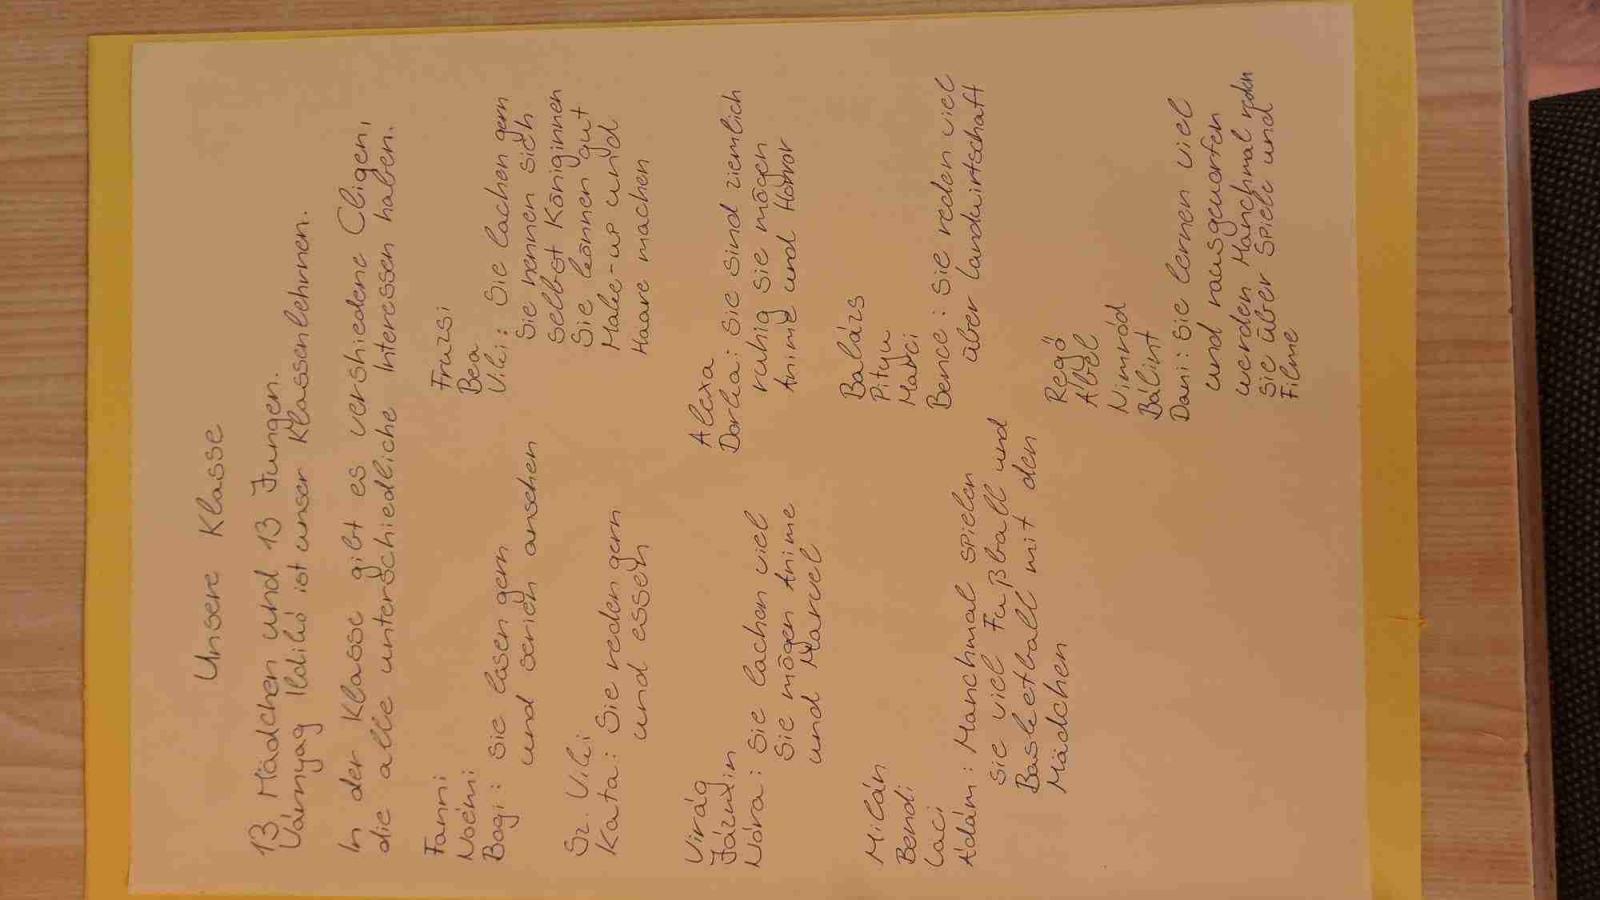 Unsere Klasse
13 Mädchen und 13 Jungen.
Várnyag Ildikó ist unser Klassenlehrnen.
In der Klasse gibt es vershiedene Cligen,
die alle unterschiedliche Interessen haben.
Fanni
Noémi
Bogi: Sie läsen gern
und serien ansehen
Sz. Viki
Kata: Sie reden gern
und essen
Virág
Jázmin
Nóra: Sie lachen viel
Sie mögen Anime
und Marvel
Milán
Bendi
Laci
Ádám: Manchmal spielen
sie viel Fußball und
Basketball mit den
Mädchen
Fruzsi
Bea
Viki: Sie lachen gern
Sie nennen sich
selbst Königinnen
Sie können gut
Make-up und
Haare machen
Alexa
Dorka: Sie sind ziemlich
ruhig Sie mögen
Anime und Horror
Balázs
Pityu
Marci
Bence: Sie reden viel
über Landwirtschaft
Regő
Ábel
Nimród
Bálint
Dani: Sie lernen viel
und rausgeworfen
werden, Manchmal reden
sie über Spiele und
Filme